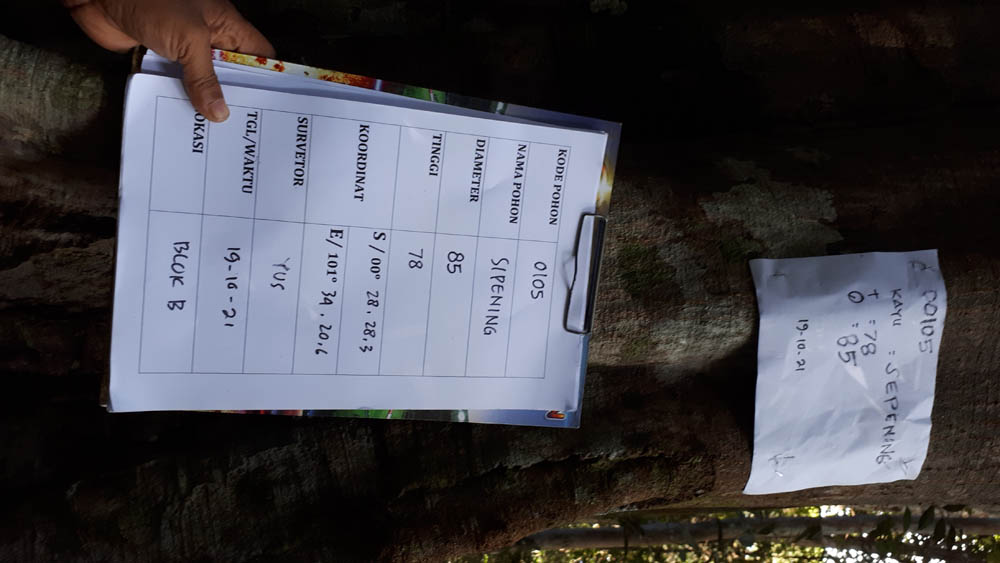 00105
KAYU : SEPENING
T : 78
O : 85
19-10-21
KODE POHON 0105
NAMA POHON SIPENING
DIAMETER 85
TINGGI 78
KOORDINAT S / 00° 28.28.3
E/ 101° 34.20.6
SURVETOR YUS
TGL/WAKTU 19-10-21
OKASI BLOK B